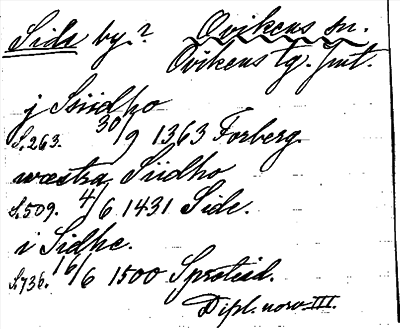 Side by? Ovikens sn.
Ovikens tg. Jmt.
j Siidho
S. 263. 30/9 1363 Forberg.
wæstra Siidho
S. 509. 4/6 1431 Side.
i Sidhe.
S. 736. 16/6 1500 Sproteid.
Dipl. norv. III.